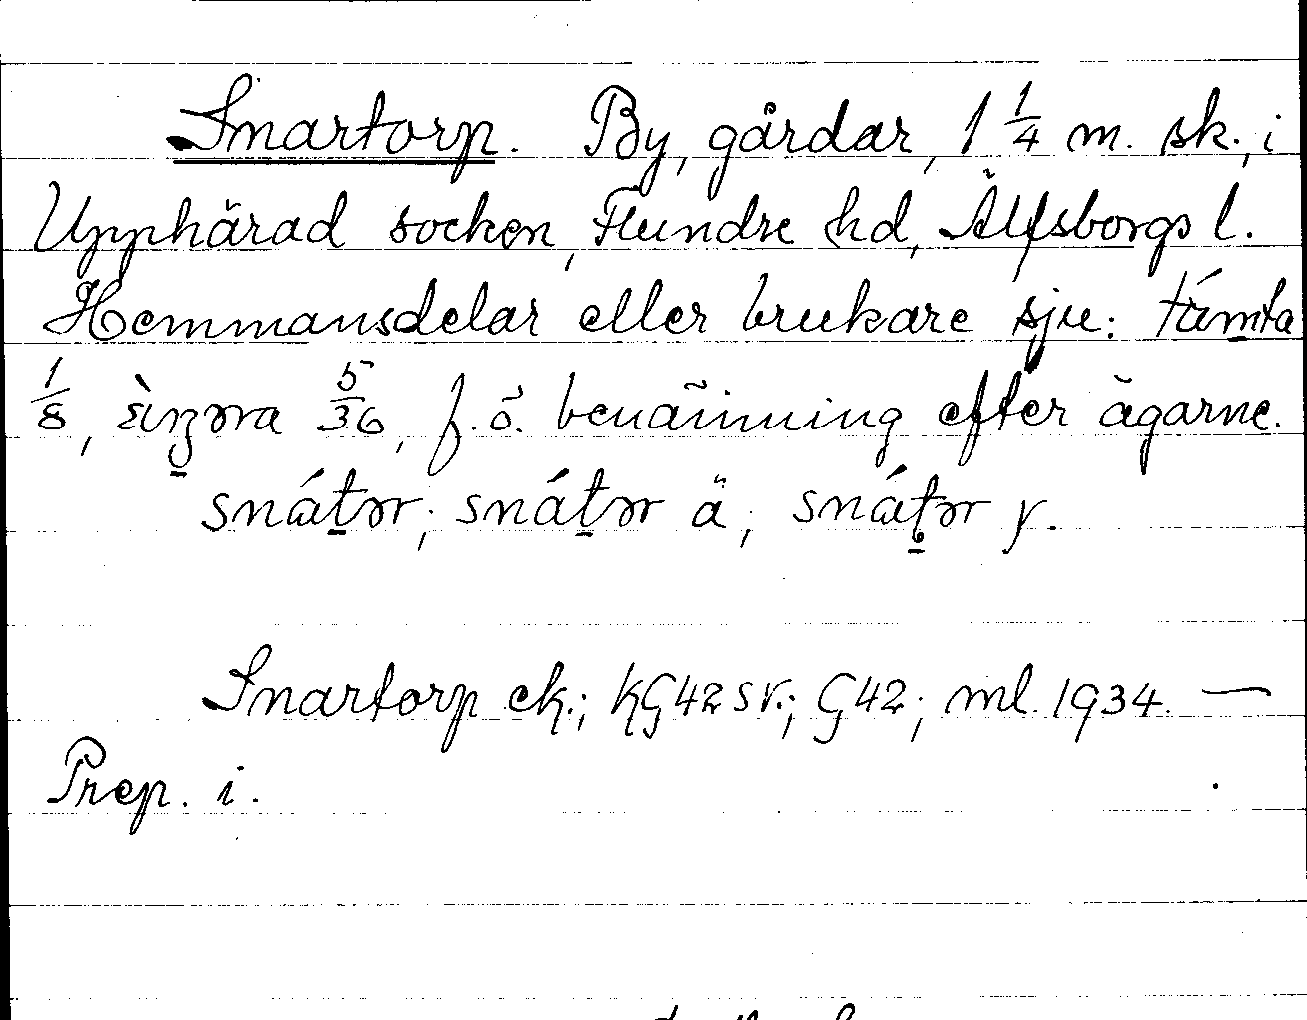 Snartorp. By, gårdar, 1 1/4 m. sk., i
Upphärad socken, Flundre hd, Älfsborgs l.
Hemmansdelar eller brukare sju: támta
1/8, 5/36, f. ö. benämning efter ägarne.
snátər; snátər ä; snátər y.
Snartorp ek.; KG42 sv.; G42; ml. 1934. —
Prep. i.